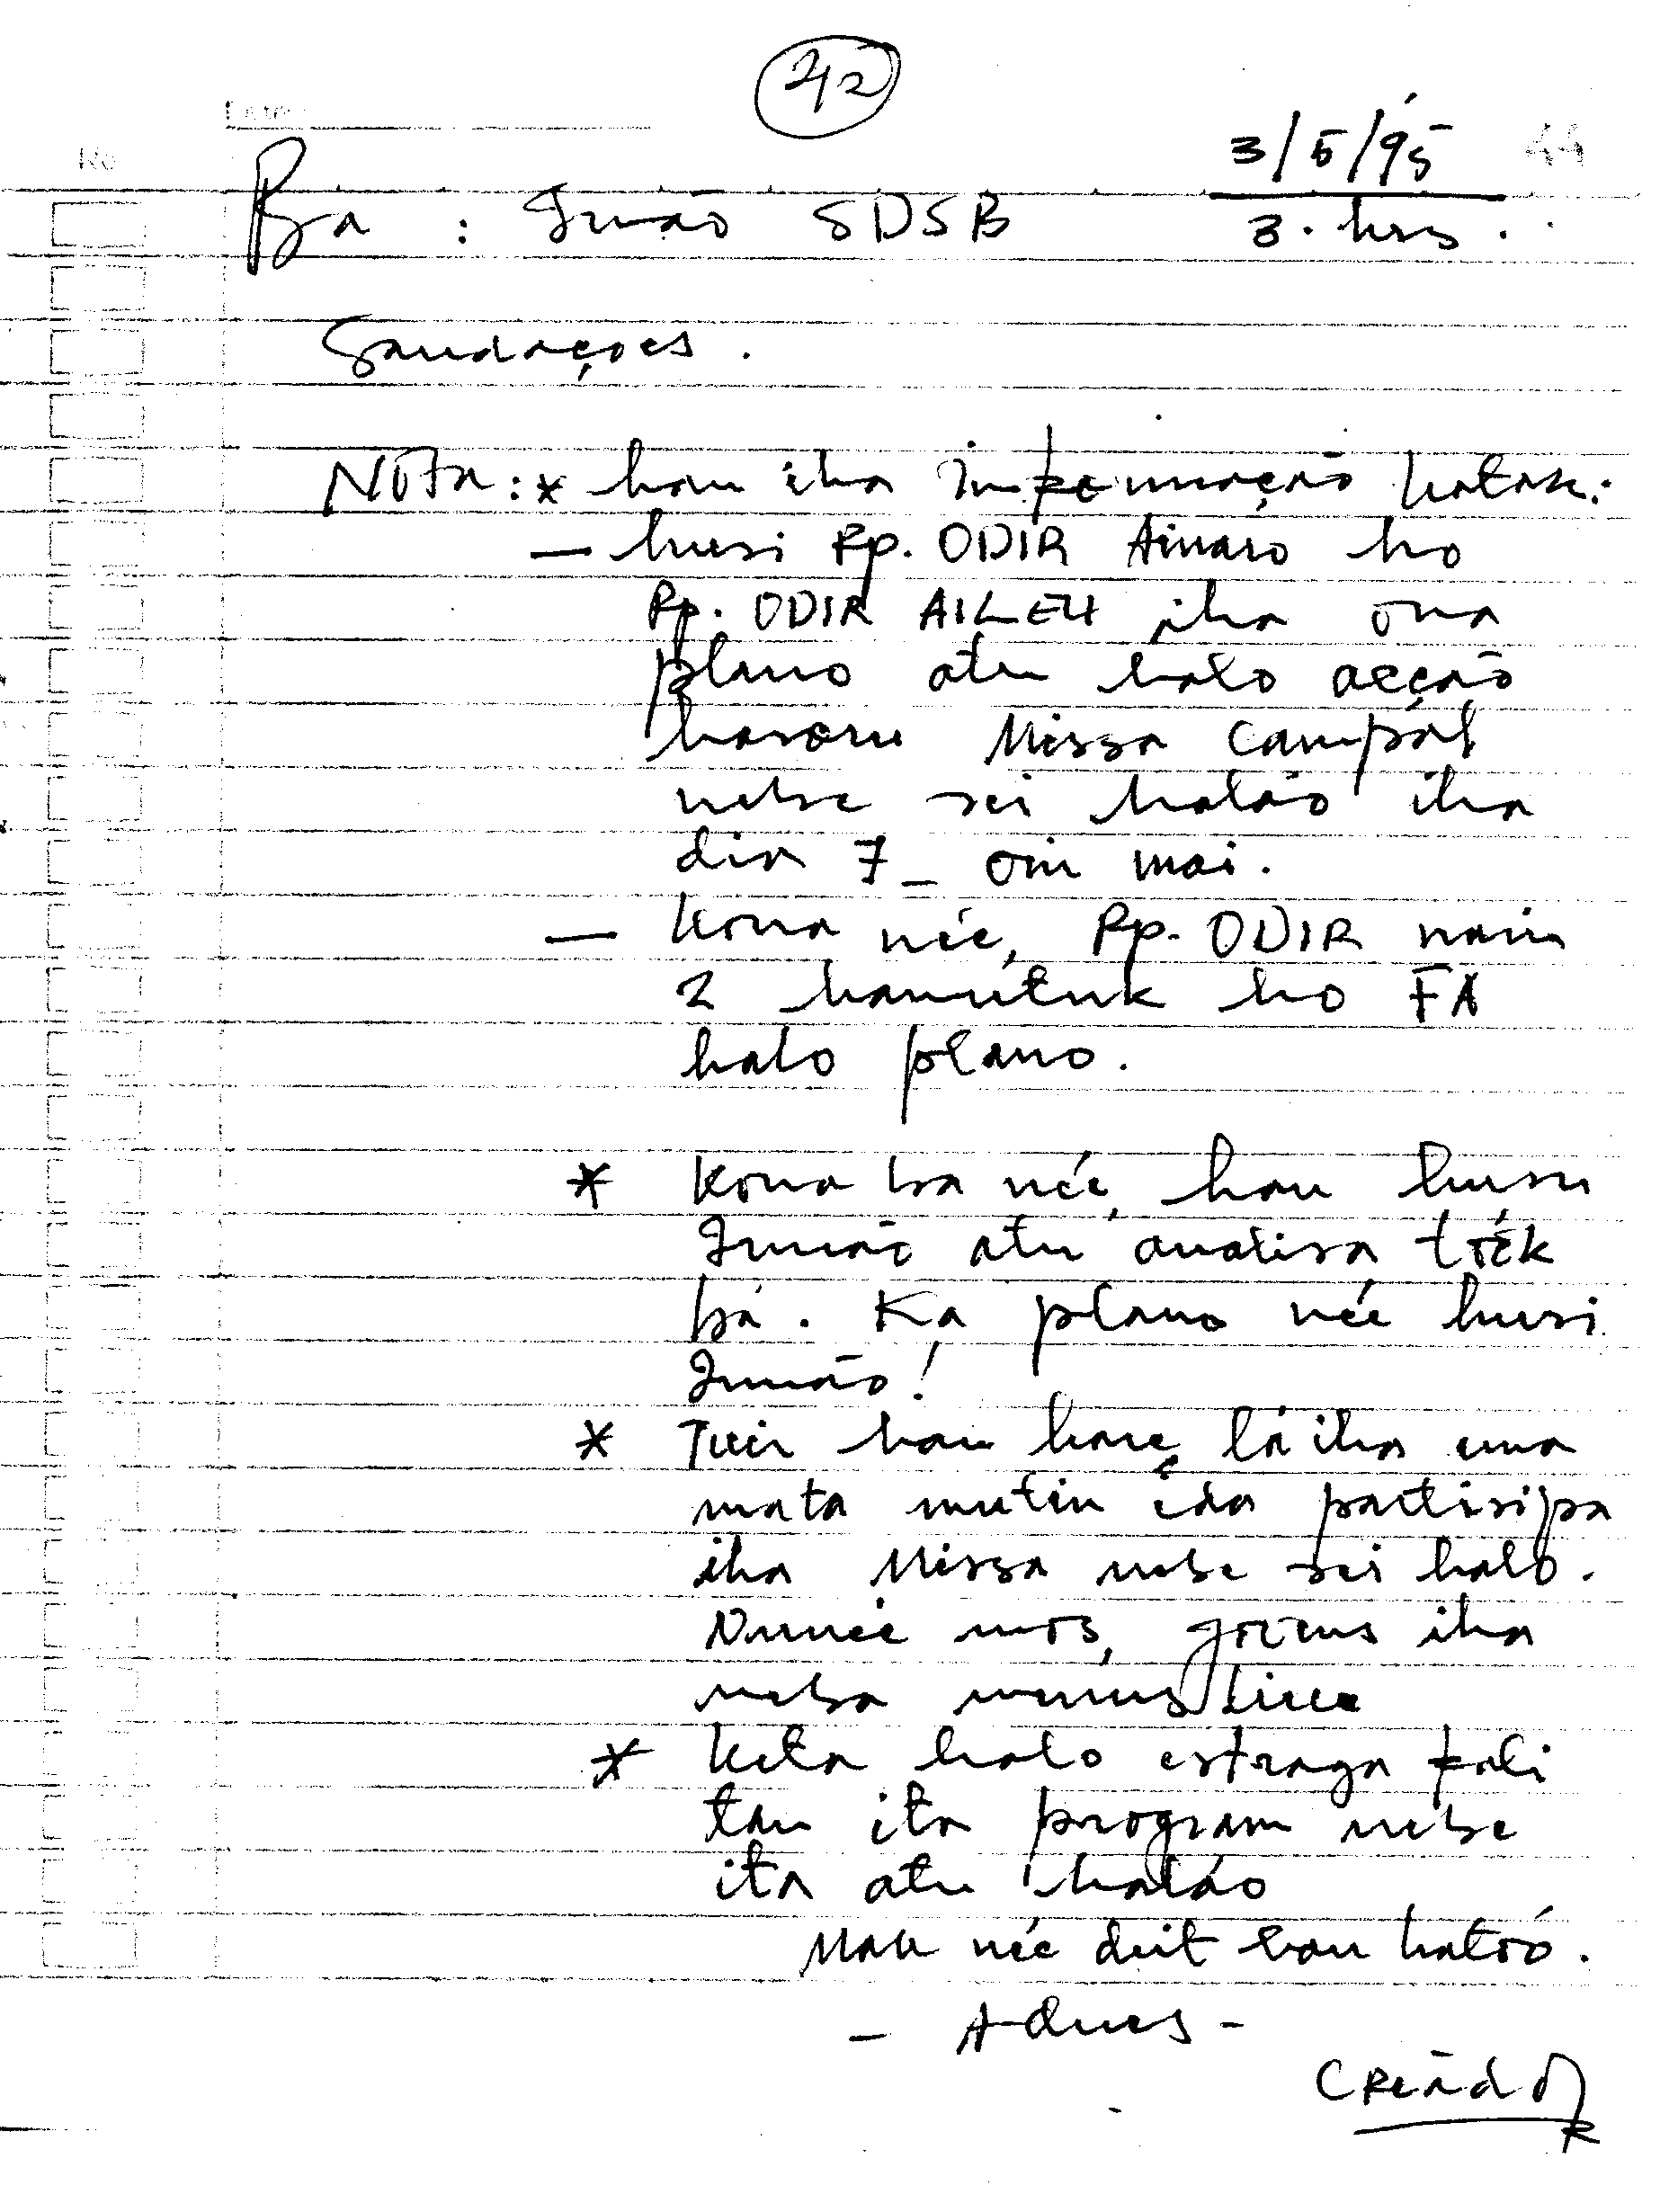 42
3/5/95
44
No
Ba : Irmão SDSB
3. hrs.
Saudações.
NOTA: * hau iha informação katak:
— husi Rp. ODIR Ainaro ho
Rp. ODIR AILEU iha ona
plano atu halo acção
hasoru Missa Campál
nebe sei haláo iha
dia 7_ oin mai.
— Kona née, Rp. ODIR nain
2 hamutuk ho FA
halo plano.
* Kona ba néé, hau husu
Irmão atu analisa toék
bá. Ka plano née husi
Irmão!
* Tuir hau haré, lá iha ema
mata mutin ida partisipa
iha Missa nebe sei halo.
Nunee mos, iha
neba
* Keta halo estraga fali
tan ita program nebe
ita atu haláo
Mak née deit hau hatoó.
- Adues -
CREÃDOR